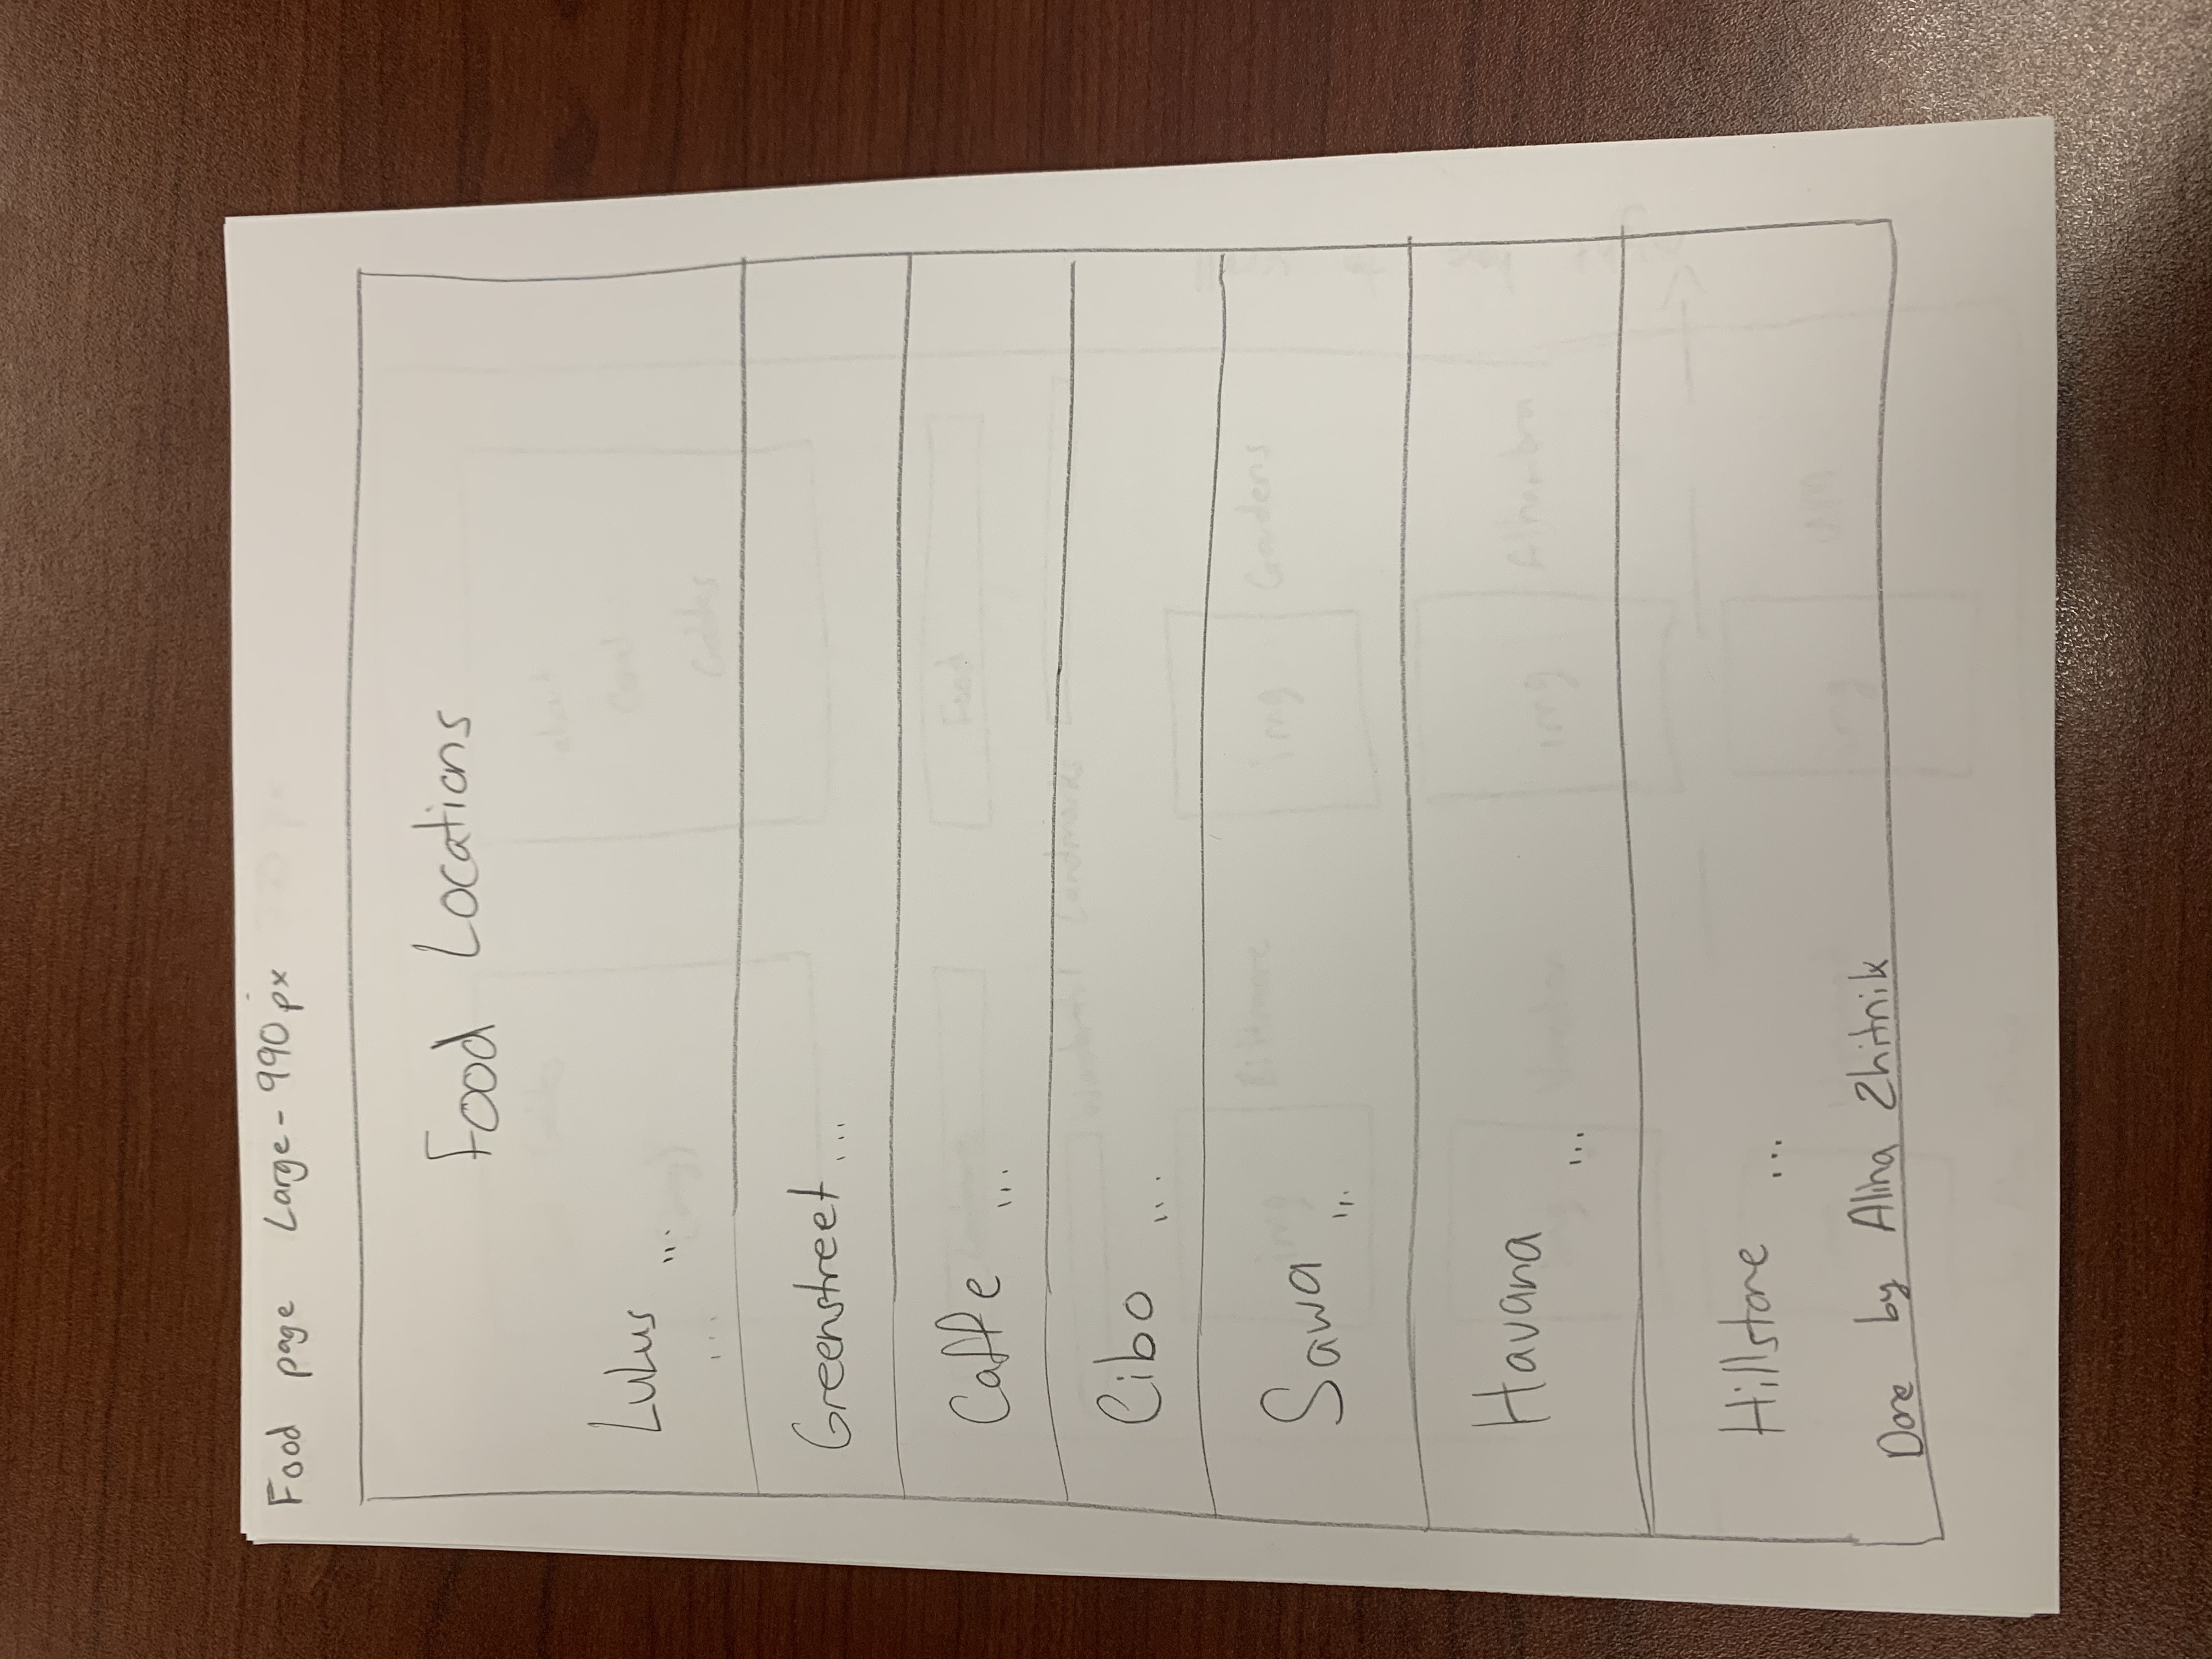 Food page Large - 990px
Food Locations
Lulus ...
...
Greenstreet ...
Caffe ...
Cibo ...
Sawa ...
Havana
...
Hillstone ...
Done by Alina Zhitnik